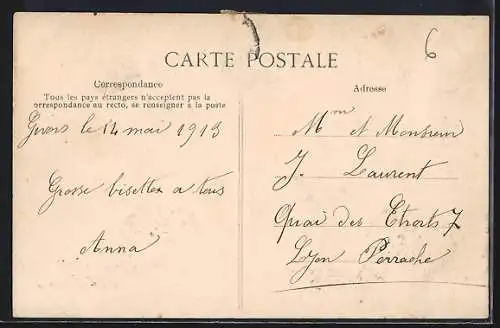 6
CARTE POSTALE
Correspondance
Tous les pays étrangers n'acceptent pas la
correspondance au recto, se renseigner à la poste
Givors le 14 mai 1913
Grosse bisettes a tous
Anna
Adresse
Mme et Monsieur
J. Laurent
Quai des Etroits 7
Lyon Perrache